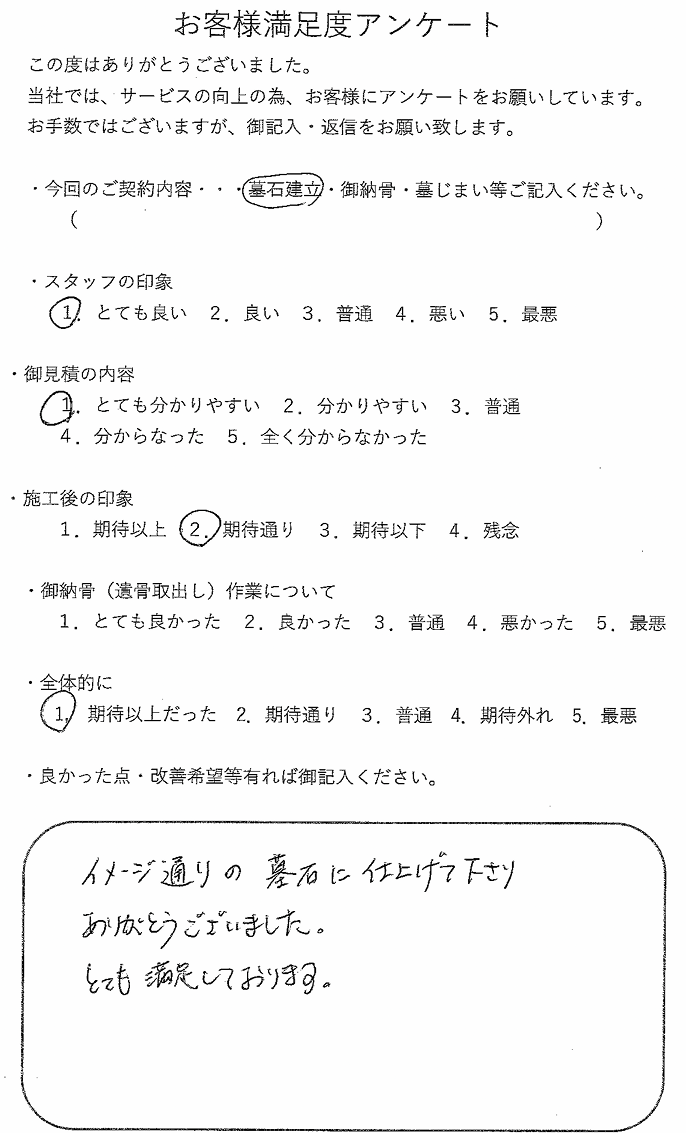 お客様満足度アンケート
この度はありがとうございました。
当社では、サービスの向上の為、お客様にアンケートをお願いしています。
お手数ではございますが、御記入・返信をお願い致します。
・今回のご契約内容・・・墓石建立・御納骨・墓じまい等ご記入ください。
( )
・スタッフの印象
1. とても良い 2. 良い 3. 普通 4. 悪い 5. 最悪
・御見積の内容
1. とても分かりやすい 2. 分かりやすい 3. 普通
4. 分からなった 5. 全く分からなかった
・施工後の印象
1. 期待以上 2. 期待通り 3. 期待以下 4. 残念
・御納骨(遺骨取出し)作業について
1. とても良かった 2. 良かった 3. 普通 4. 悪かった 5. 最悪
・全体的に
1. 期待以上だった 2. 期待通り 3. 普通 4. 期待外れ 5. 最悪
・良かった点・改善希望等有れば御記入ください。
イメージ通りの墓石に仕上げて下さり
ありがとうございました。
とても満足しております。